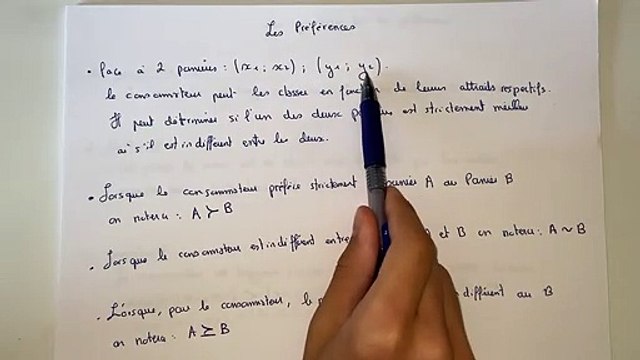 Les Préférences
• Face à 2 paniers : (x₁ ; x₂) ; (y₁ ; y₂).
le consommateur peut les classer en fonction de leurs attraits respectifs.
Il peut déterminer si l'un des deux est strictement meilleur
où s'il est indifférent entre les deux.
• Lorsque le consommateur préfère strictement panier A au Panier B
on notera : A ≻ B
• Lorsque le consommateur est indifférent entre A et B on notera : A ~ B
• Lorsque, pour le consommateur, le indifférent au B
on notera : A ⪰ B